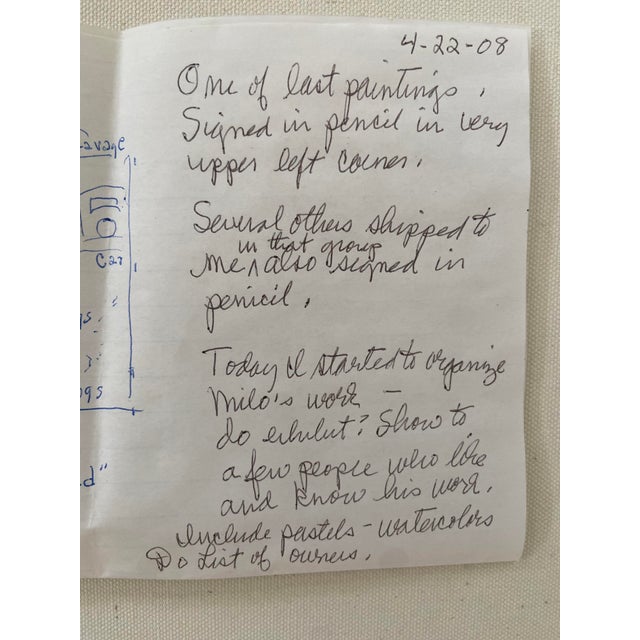 4-22-08
One of last paintings.
Signed in pencil in very
upper left corner.
Several others shipped to
in that group
me ^ also signed in
penicil.
Today I started to organize
Milo's work —
do exhibit? Show to
a few people who like
and know his work.
Include pastels - watercolors
Do List of owners.
Savage
Car
"
gs
d"